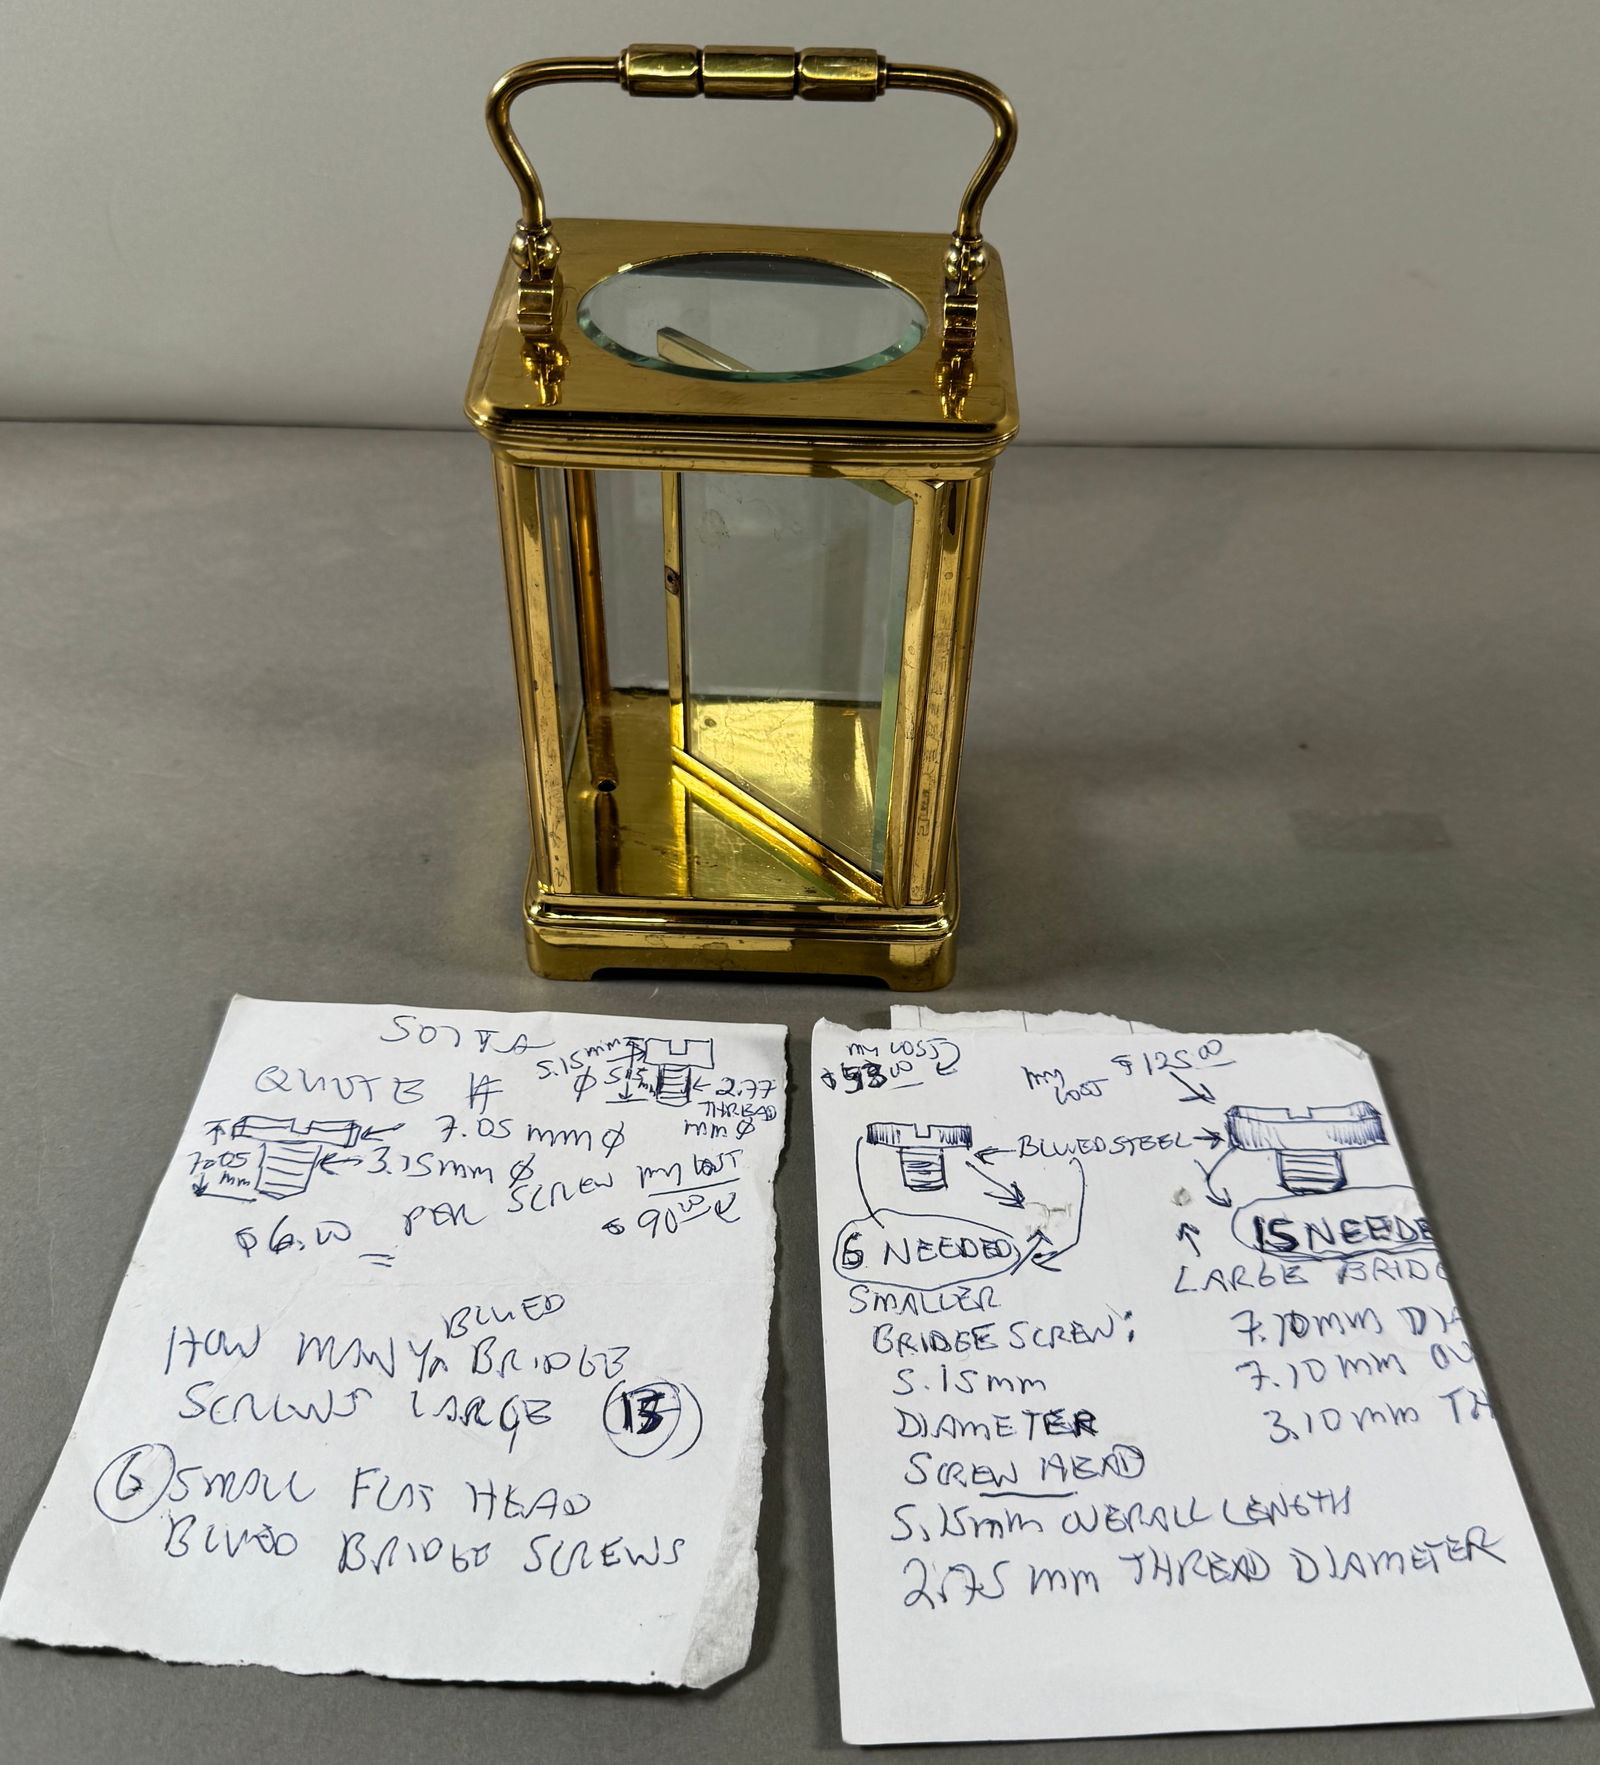 QUOTE #
5.15mm
Ø 5.15
2.77
THREAD
mm Ø
7.05 mm Ø
7.05
mm
3.15mm Ø
$6.00 PER SCREW
MY COST
$ 90.00
HOW MANY BLUED BRIDGE
SCREWS LARGE 15
6 SMALL FLAT HEAD
BLUED BRIDGE SCREWS
MY COST
$ 00
MY COST
$125.00
BLUED STEEL
6 NEEDED
15 NEEDE
SMALLER
BRIDGE SCREW:
5.15mm
DIAMETER
SCREW HEAD
5.15mm OVERALL LENGTH
2.75 mm THREAD DIAMETER
LARGE BRIDG
7.10mm DIA
7.10mm OV
3.10mm TH